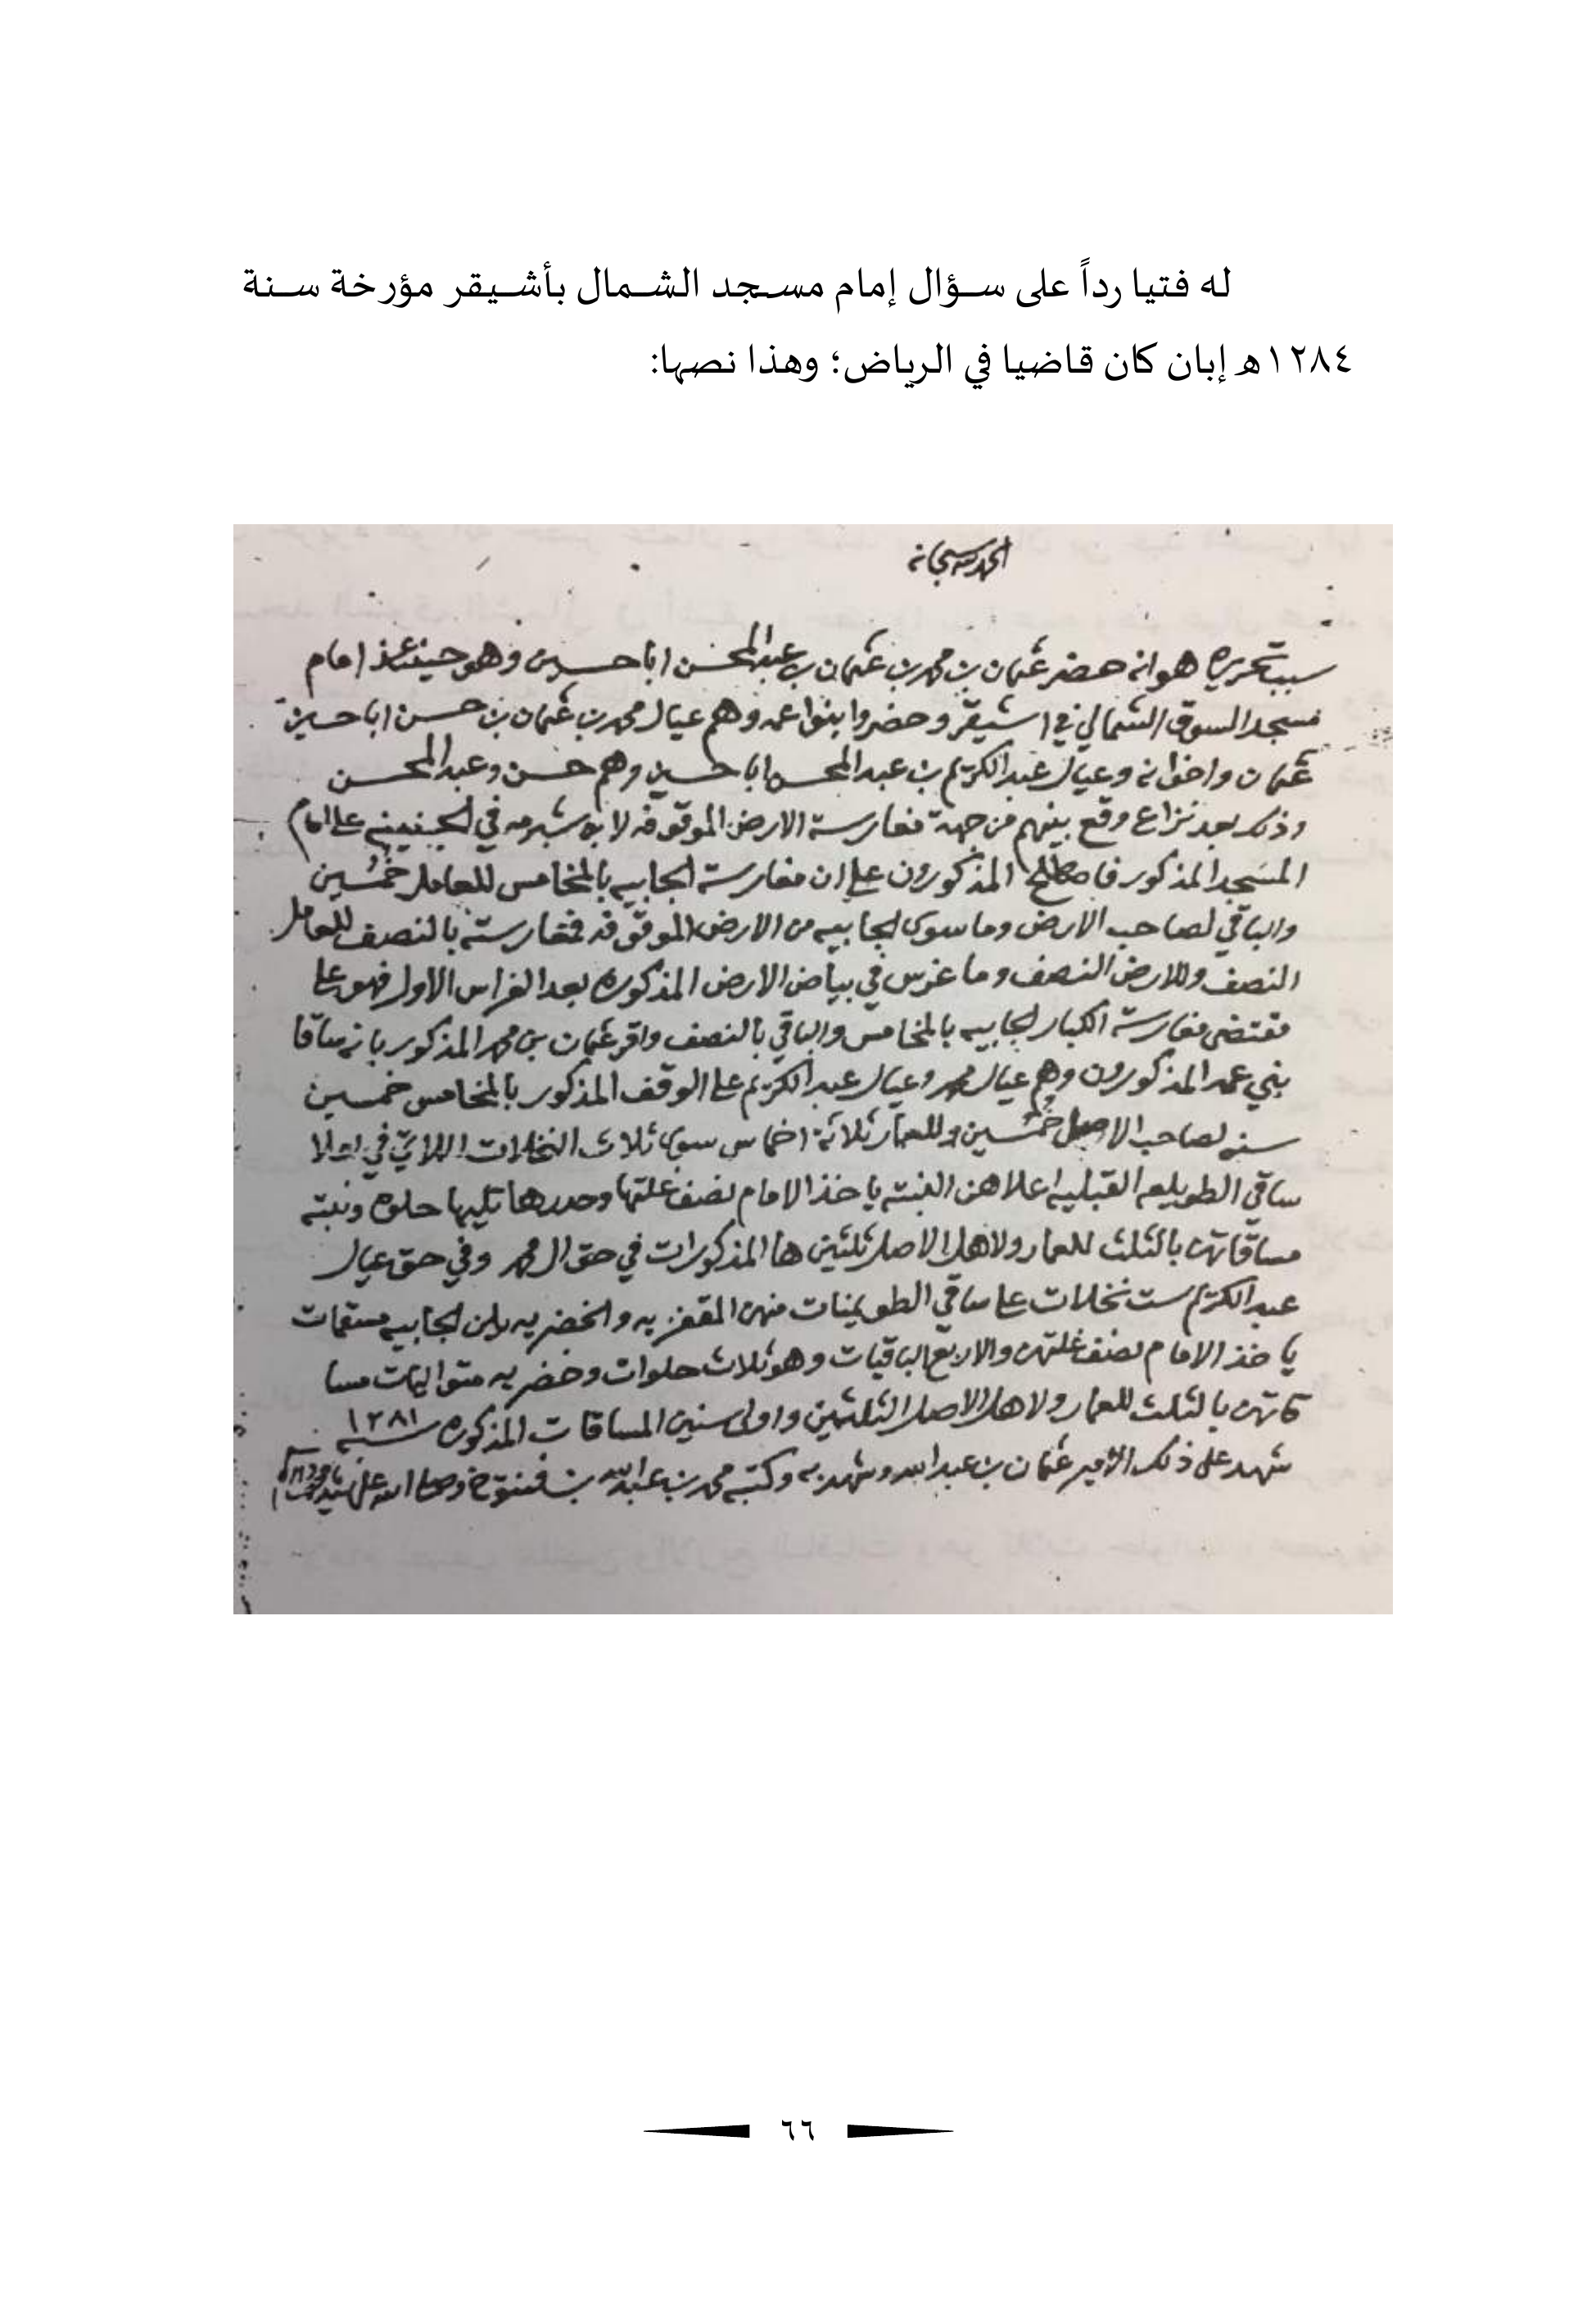 له فتيا رداً على سؤال إمام مسجد الشمال بأشيقر مؤرخة سنة
١٢٨٤ه إبان كان قاضيا في الرياض؛ وهذا نصها:
الحمد لله سبحانه
سبب تحريره هو انه حضر عثمان بن محمد بن عثمان بن عبدالمحسن اباحسين وهو حينئذ امام
مسجد السوق الشمالي في اشيقر وحضروا بنوا عمه وهم عيال محمد بن عثمان بن حسن اباحسين
عثمان واخوانه وعيال عبدالكريم بن عبدالمحسن اباحسين وهم حسن وعبدالمحسن
وذلك بعد نزاع وقع بينهم من جهة مغارسة الارض الموقوفه لابو شبرمه في الجنينيه على امام
المسجد المذكور فاصطلح المذكورون على ان مغارسة الجابيه بالمخامس للعامل خمسين
والباقي لصاحب الارض وما سوى الجابيه من الارض الموقوفه فمغارسته بالنصف للعامل
النصف وللارض النصف وما غرس في بياض الارض المذكوره بعد الغراس الاول فهو على
مقتضى مغارسة الكبار الجابيه بالمخامس والباقي بالنصف واقر عثمان بن محمد المذكور بانه ساقا
بني عمه المذكورون وهم عيال محمد وعيال عبدالكريم على الوقف المذكور بالمخامس خمسين
سنه لصاحب الاصل خمسين وللعمار ثلاثة اخماس سوى ثلاث النخلات اللائي في
ساقي الطويلعه القبليه اعلاهن النبته ياخذ الامام نصف غلتها وحدرها تليها حلوه ونبته
مساقاتهن بالثلث للعمار ولاهل الاصل ثلثين ها المذكورات في حق ال محمد وفي حق عيال
عبدالكريم ست نخلات على ساقي الطويمنات منهن المقفزيه والخضريه يلين الجابيه
ياخذ الامام نصف غلتهن والاربع الباقيات وهو ثلاث حلوات وخضريه متواليات مسا
قاتهن بالثلث للعمار ولاهل الاصل الثلثين واولى سنين المساقات المذكوره سنة ١٢٨١
شهد على ذلك الامير عثمان بن عبدالله وشهد به وكتبه محمد بن عبدالله بن فنتوخ وصلى الله على سيدنا محمد
٦٦